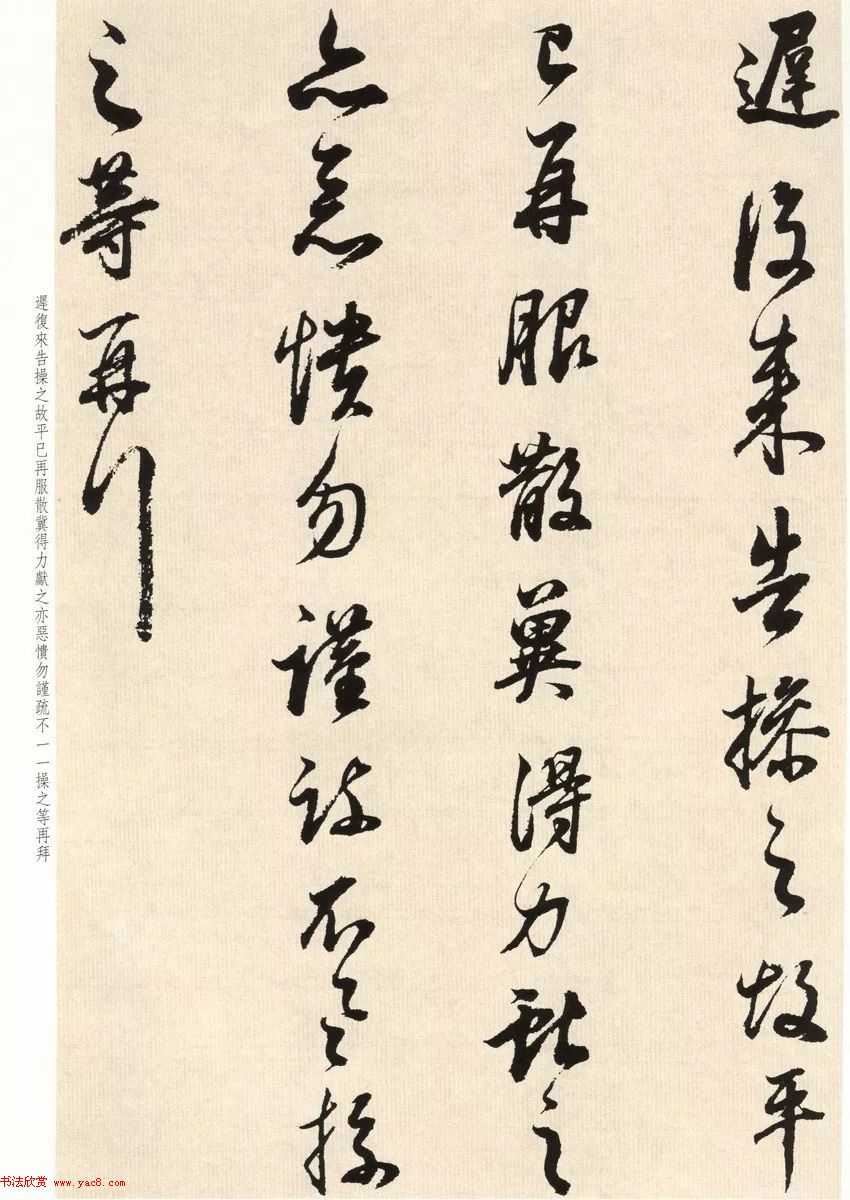 遲復來告操之故平
已再服散冀得力獻之
亦惡憒勿謹疏不一一操
之等再拜
遲復來告操之故平已再服散冀得力獻之亦惡憒勿謹疏不一一操之等再拜
书法欣赏 www.yac8.com